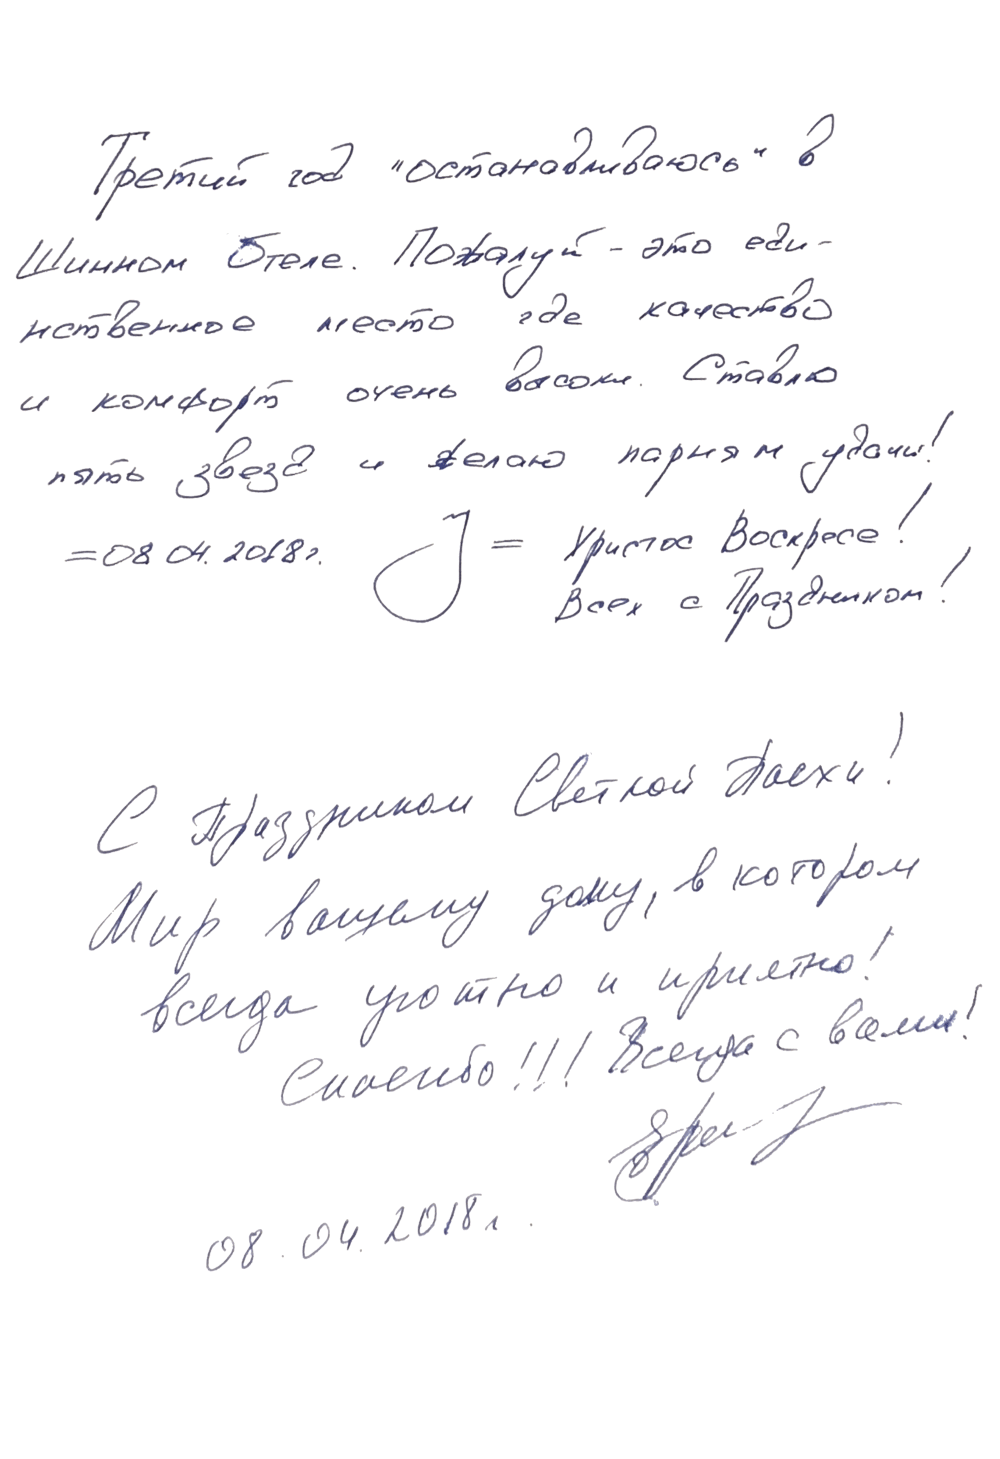 Третий год "останавливаюсь" в
Шинном Отеле. Пожалуй - это еди-
нственное место где качество
и комфорт очень высоки. Ставлю
пять звезд и желаю парням удачи!
=08 04. 2018г. = Христос Воскресе!
Всех с Праздником!
С Праздником Светлой Пасхи!
Мир вашему дому, в котором
всегда уютно и приятно!
Спасибо!!! Всегда с вами!
08.04.2018г.